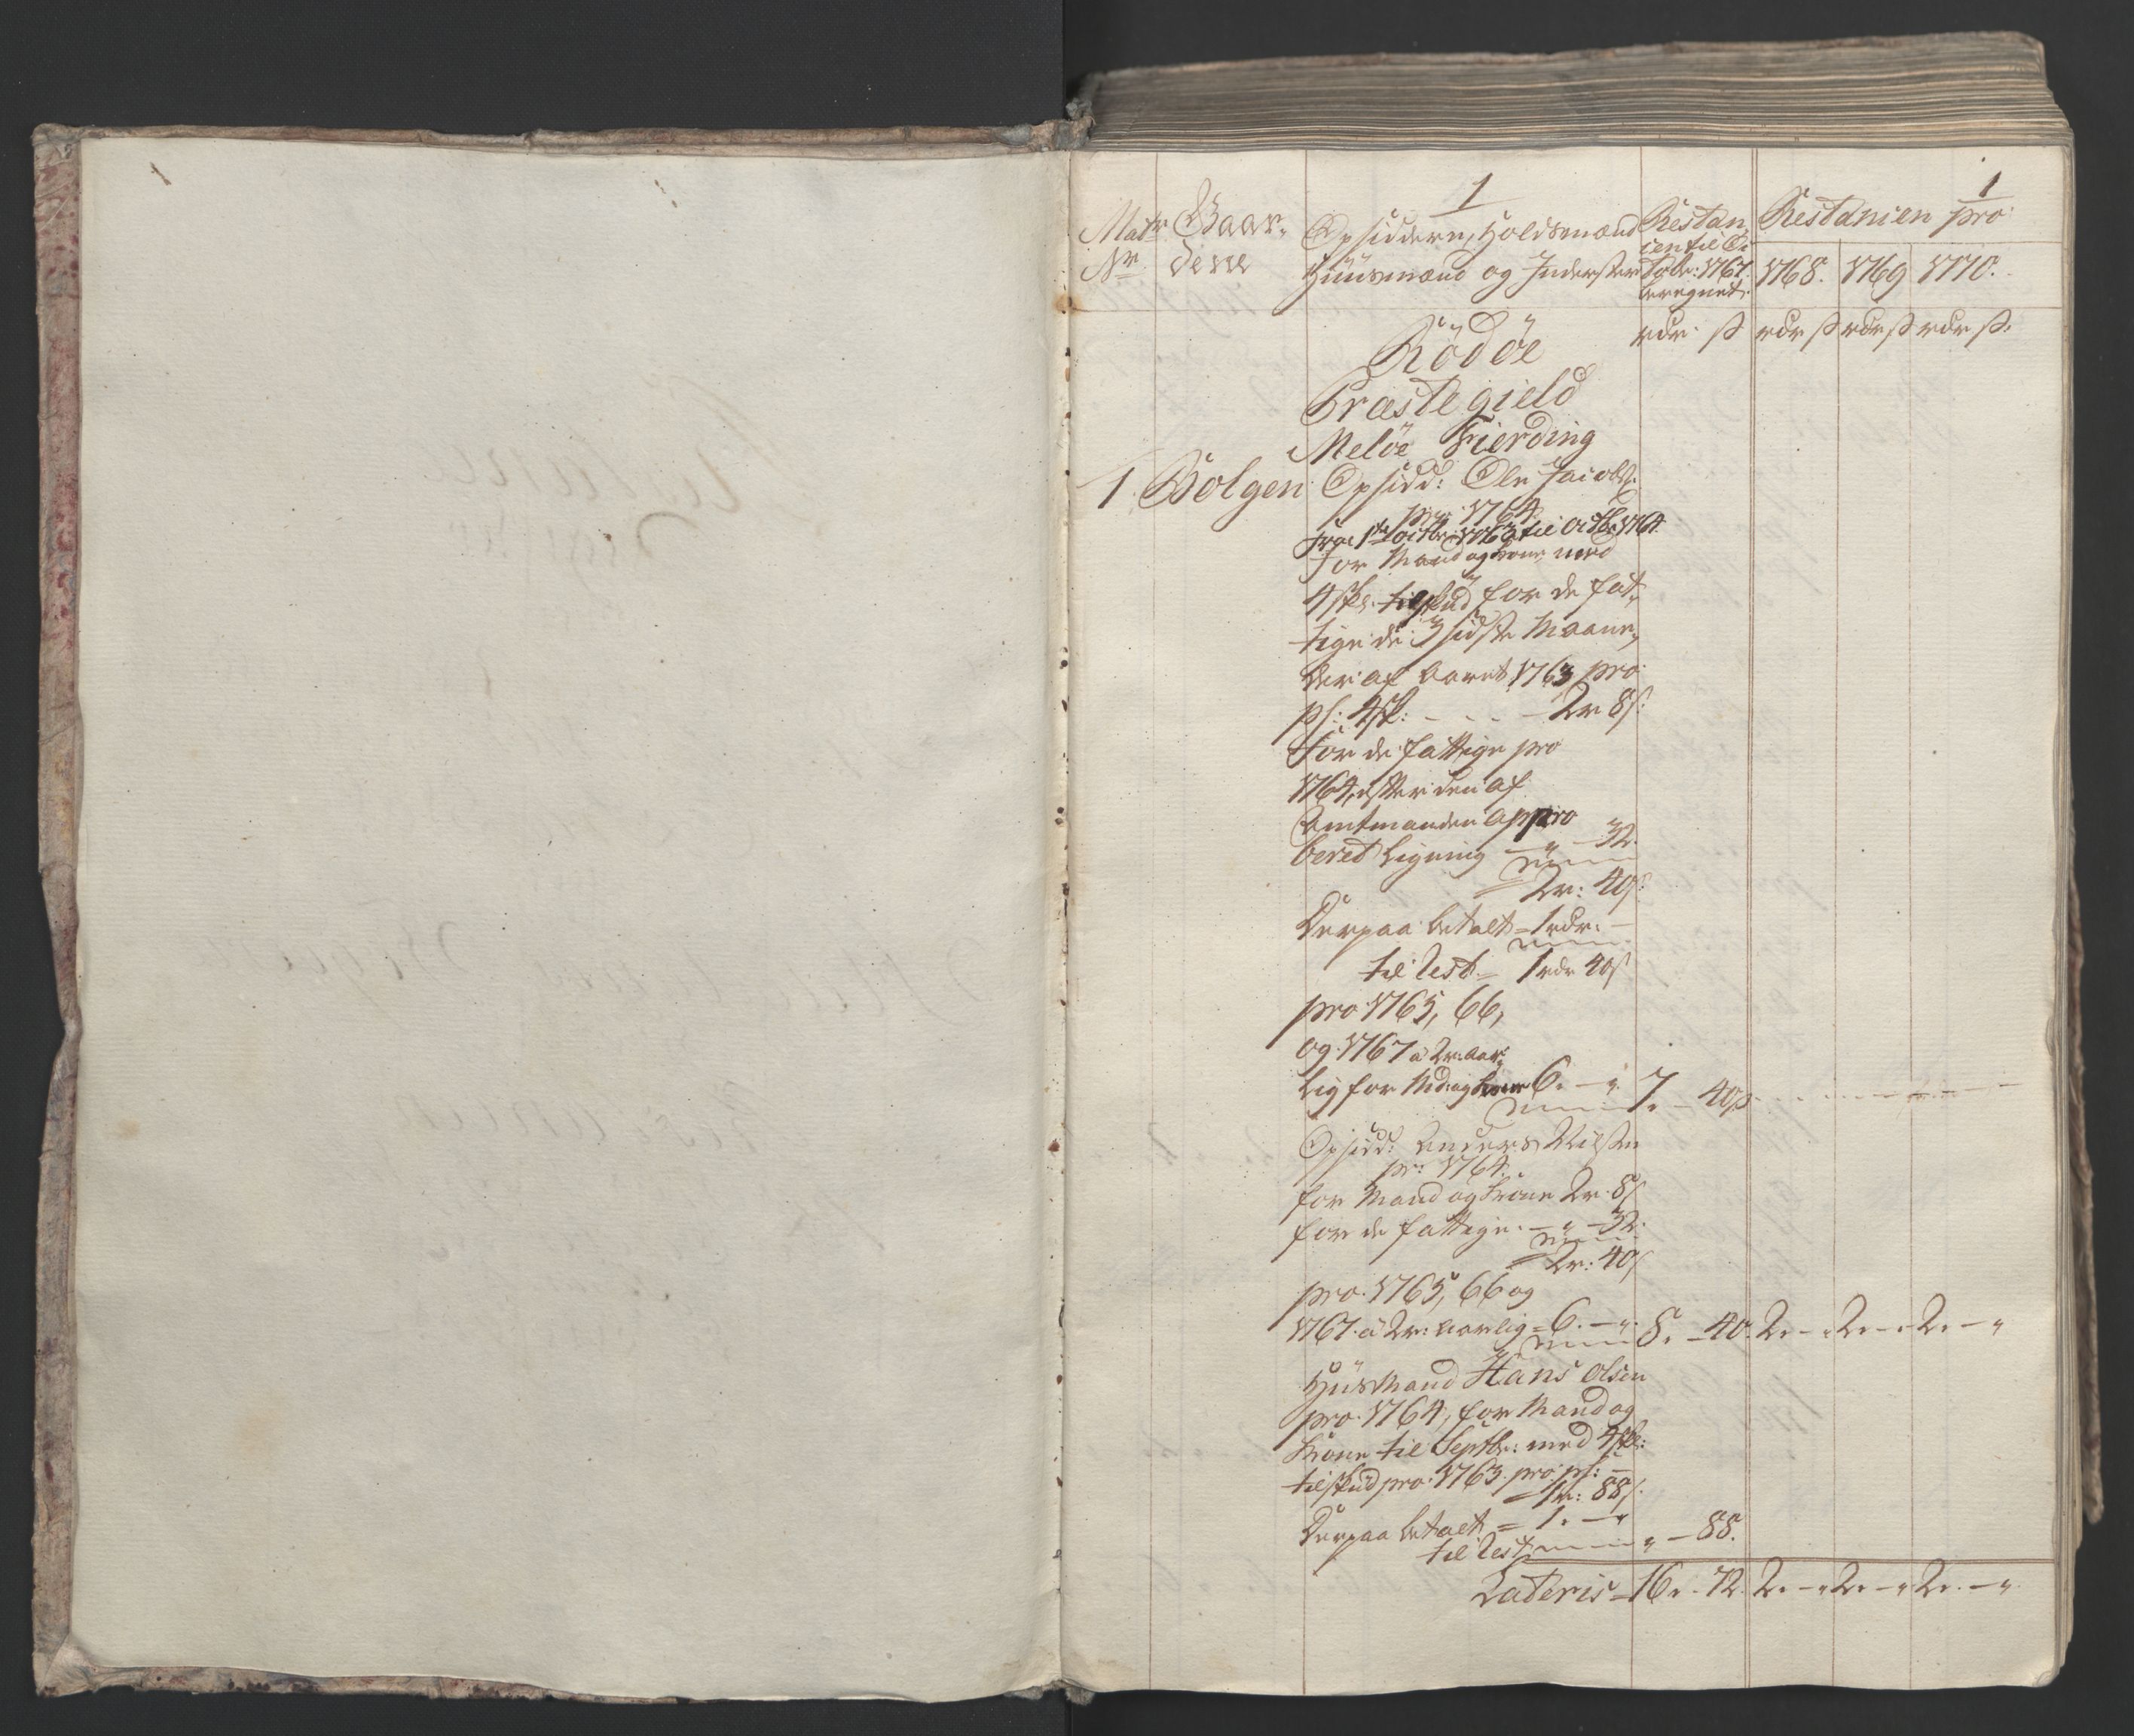 1
1
Matr Gaar-
Nr derne
Opsiddere, Holdsmænd
Huusmænd og Inderster
Restan-
cien til Oc-
tobr: 1767.
beregnet.
Restancien pro
1768. 1769 1770.
rdr ß rdr ß rdr ß rdr ß.
Rödöe
Præstegield
Melöe Fierding
1. Bolgen Opsidd: Ole Jacobs:
pro 1764.
Fra 1ste Octbr: 1763 til Octbr 1764
for Mand og Kone, med
4 sk: tilskud for de fat-
tige de 3 sidste Maane-
der af Aaret 1763 pro
ps: 4 sk: - - - 2r 8s:
For de fattige pro
1764, efter den af
Amtmanden appro
beret Ligning - " - 32.
2r: 40s:
Derpaa betalt = 1 rdr: -
til Rest = 1 rdr 40s
pro 1765, 66,
og 1767 a 2r: aar-
lig for Md: og Kone 6. - ". 7. - 40s
Opsidd: Anders Nilsen
pr: 1764.
for Mand og Kone 2r. 8s
for de fattige. - " - 32.
2r: 40s
pro. 1765, 66 og
1767. a 2r: aarlig = 6. - ". 8. - 40. 2. - " 2. - " 2. - "
Huusmand Hans Olsen
pro. 1764, for Mand og
Kone til Septbr: med 4 sk:
tilskud pro. 1763. pro ps: -
1r: 88s.
Derpaa betalt = 1. - "
til Rest " - 88.
Lateris = 16. - 72. 2. - " 2. - " 2. - "